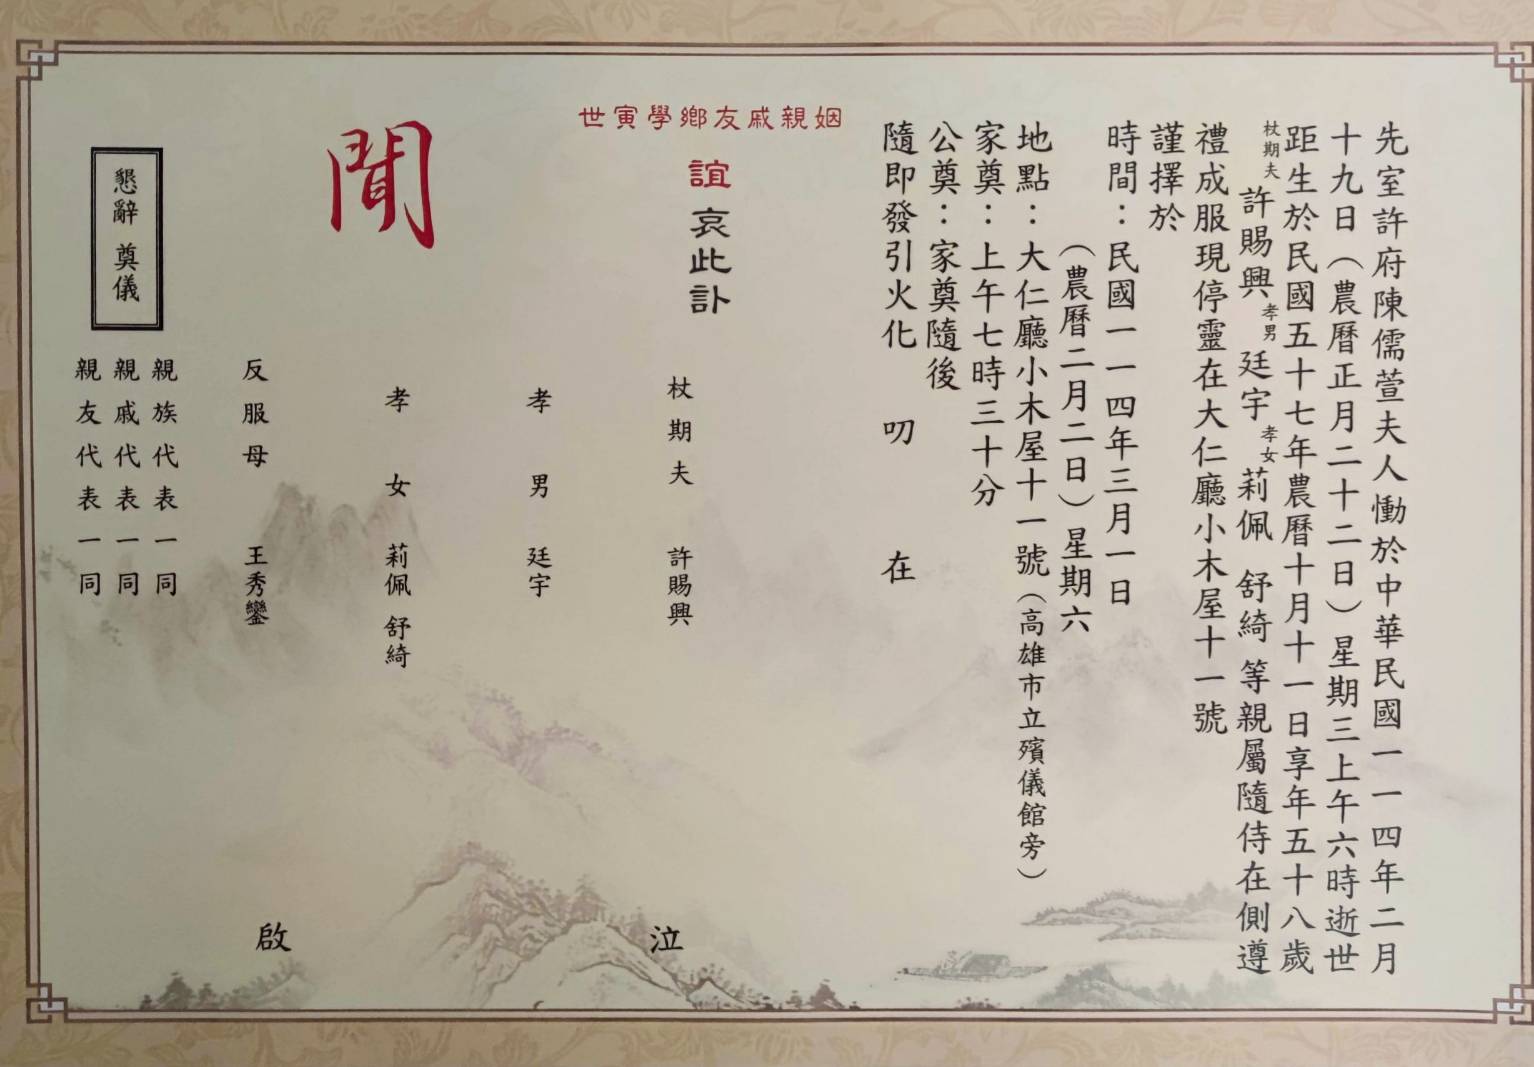 先室許府陳儒萱夫人慟於中華民國一一四年二月
十九日（農曆正月二十二日）星期三上午六時逝世
距生於民國五十七年農曆十月十一日享年五十八歲
杖期夫 許賜興 孝男 廷宇 孝女 莉佩 舒綺 等親屬隨侍在側遵
禮成服現停靈在大仁廳小木屋十一號
謹擇於
時間：民國一一四年三月一日
（農曆二月二日）星期六
地點：大仁廳小木屋十一號（高雄市立殯儀館旁）
家奠：上午七時三十分
公奠：家奠隨後
隨即發引火化 叨 在
姻親戚友鄉學寅世
誼 哀此訃
聞
杖期夫 許賜興
孝男 廷宇
孝女 莉佩 舒綺
反服母 王秀鑾
泣
啟
懇辭 奠儀
親族代表一同
親戚代表一同
親友代表一同